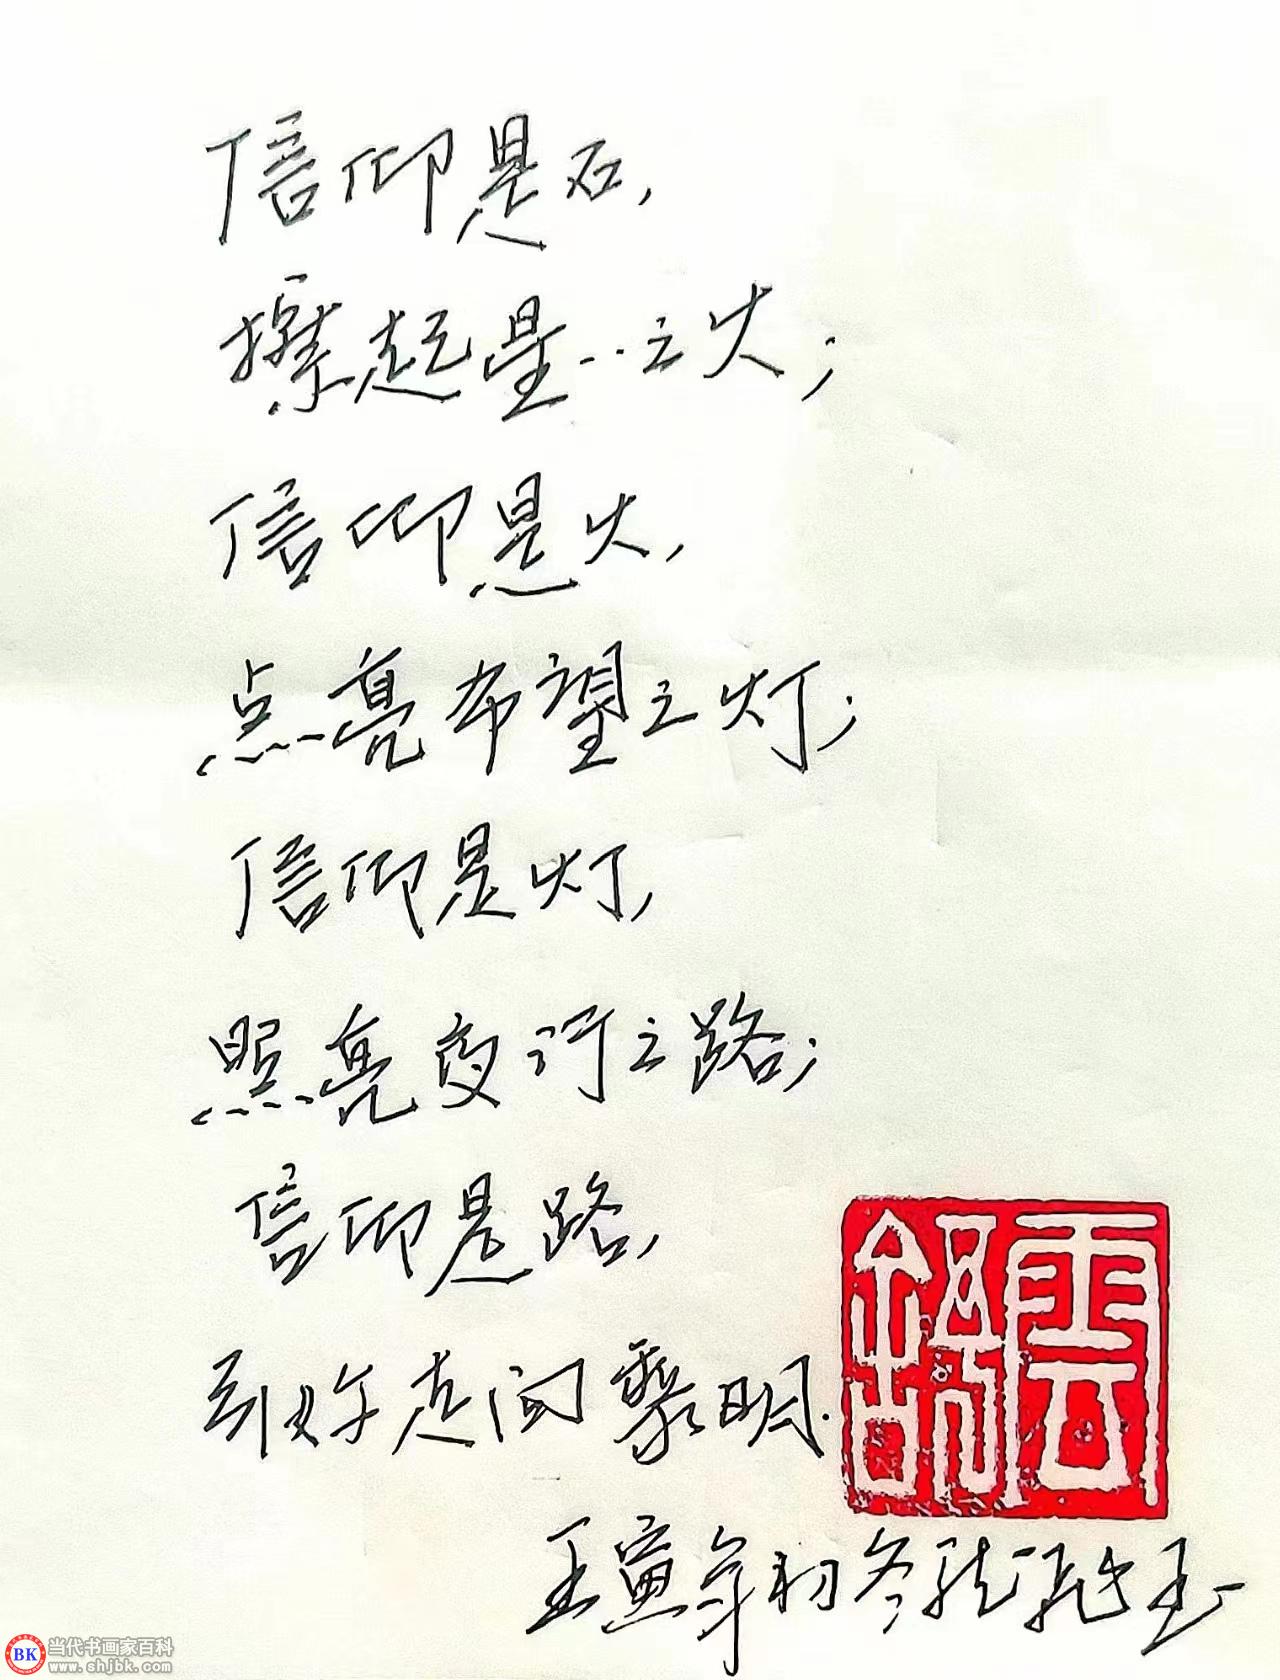 信仰是石,
擦起星··之火;
信仰是火,
点亮希望之灯;
信仰是灯,
照亮夜行之路;
信仰是路,
引你走向黎明.
壬寅年初冬
雲
BK 当代书画家百科
www.shjbk.com